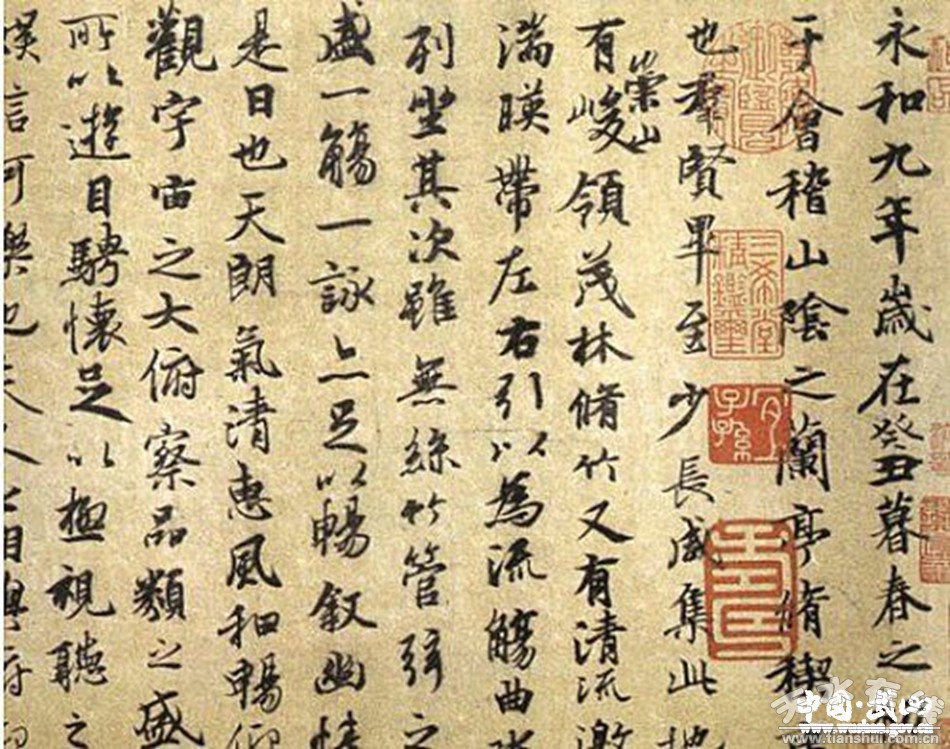 永和九年歲在癸丑暮春之
于會稽山陰之蘭亭脩禊
也羣賢畢至少長咸集此地
有崇山峻領茂林脩竹又有清流激
湍暎帶左右引以為流觴曲水
列坐其次雖無絲竹管弦之
盛一觴一詠亦足以暢敘幽情
是日也天朗氣清惠風和暢仰
觀宇宙之大俯察品類之盛
所以遊目騁懷足以極視聽之
信可樂也夫人之相與
三希堂精鑑璽
宜子孫
www.tianshui.com.cn